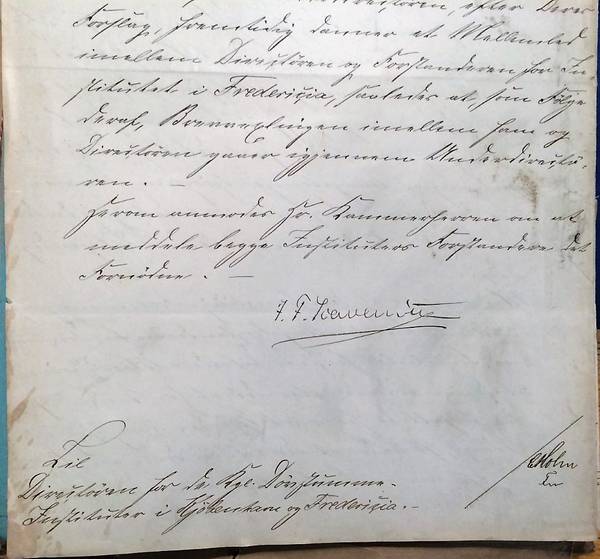 Directøren, efter Deres
Forslag, fremtidig danner et Mellemled
imellem Directøren og Forstanderen for In-
stitutet i Fredericia, saaledes at, som Følge
deraf, Brevvexlingen imellem ham og
Directøren gaaer igjennem Underdirectø-
ren. —
Herom anmodes Hr. Kammerherren om at
meddele begge Instituters Forstandere det
Fornødne. —
J. F. Scavenius
Til
Directøren for de Kgl. Døvstumme-
Instituter i Kjøbenhavn og Fredericia. —
Holm